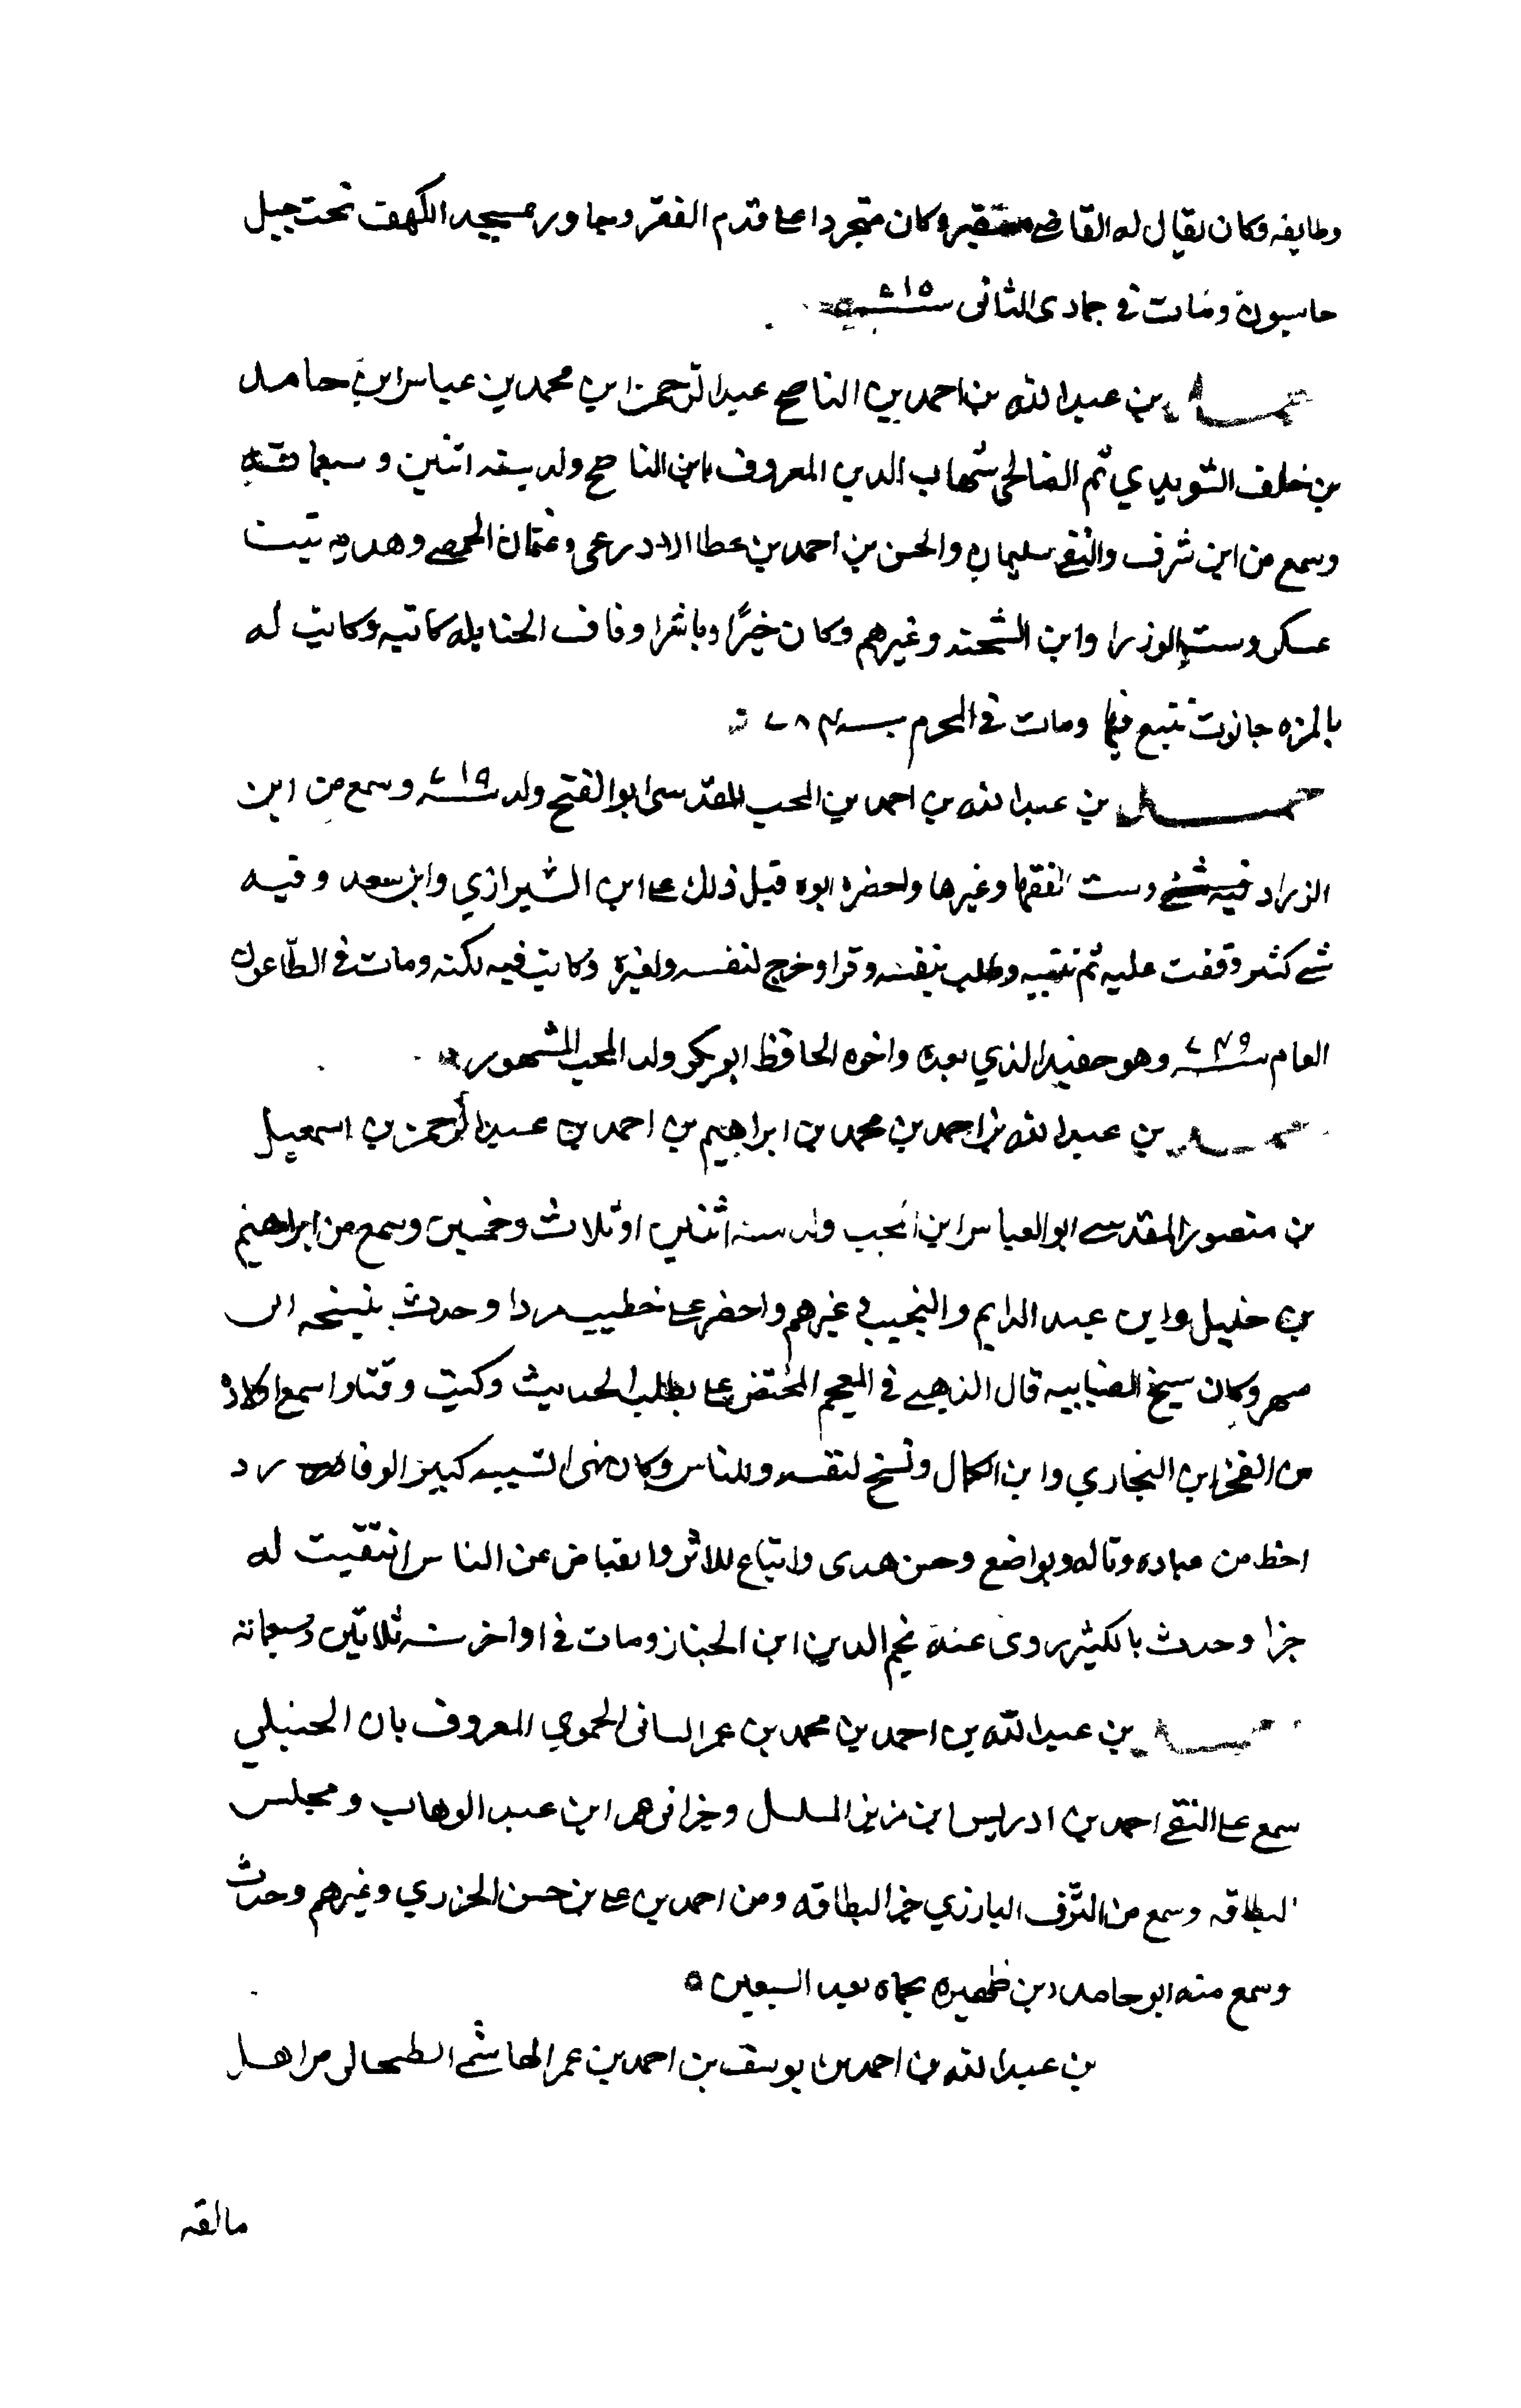 وظايفه وكان يقال له القاضى فقير وكان متجردا على قدم الفقر وجاور مسجد الكهف تحت جبل
قاسيون ومات فى جمادى الثانى سنة ٧١٥
احمد بن عبدالله بن احمد بن الناصح عبدالرحمن ابن محمد بن عياس ابن حامد
بن خلف السويدي ثم الصالحى شهاب الدين المعروف بابن الناصح ولد سنه اثنين وسبعمائه
وسمع من ابن شرف والتقى سليمان والحسن بن احمد بن عطا الادرعى وعثمان الحمصى وهديه بنت
عسكر وست الوزرا وابن الشحنه وغيرهم وكان خيرا وباشر اوقاف الحنابله كاتبه وكانت له
بالمزه حانوت يبيع فيها ومات فى المحرم سنه ٧٨٤
احمد بن عبدالله بن احمد بن المحب المقدسى ابوالفتح ولد سنة ٧١٩ وسمع من ابن
الزراد وست الفقها وغيرها واحضره ابوه قبل ذلك على ابن الشيرازي وابن سعد وفيه
شى كثير وقفت عليه ثم تنبه وطلب بنفسه وقرا وخرج لنفسه ولغيره وكانت فيه لكنه ومات فى الطاعون
العام سنة ٧٤٩ وهو حفيد الذي بعده واخوه الحافظ ابوبكر ولد المحب المشهور
احمد بن عبدالله بن احمد بن محمد بن ابراهيم بن احمد بن عبدالرحمن بن اسمعيل
بن منصور المقدسى ابوالعباس ابن المحب ولد سنه اثنين او ثلاث وخمسين وسمع من ابراهيم
بن خليل وابن عبدالدايم والنجيب وغيرهم واحضر على خطيب مردا وحدث بنسخه ابى
مسهر وكان شيخ الضيابيه قال الذهبى فى المعجم المختص على بطلب الحديث وكتب وقتا واسمع اولاده
من الفخر ابن البخاري وابن الكمال ونسخ لنفسه وللناس وكان بهى الشيبه كبير الوقار رد
احظ من عباده وتاله وتواضع وحسن هدى واتباع للاثر وانقباض عن الناس انتقيت له
جزا وحدث بالكثير روى عنه نجم الدين ابن الخباز ومات فى اواخر سنه ثلاثين وسبعمائة
احمد بن عبدالله بن احمد بن محمد بن عمر الحموي المعروف بابن الحنبلي
سمع على التقى احمد بن ادريس ابن مزيز المسلسل وجزا ابن عبدالوهاب ومجلس
البطاقه وسمع من الشرف البارزي جزا البطاقه ومن احمد بن على بن حسن الجزري وغيرهم وحدث
وسمع منه ابوحامد ابن ظهيره بحماه بعد السبعين ٥
بن عبدالله بن احمد بن يوسف بن احمد بن عمر الهاشمى الطنجالى من اهل
مالقه